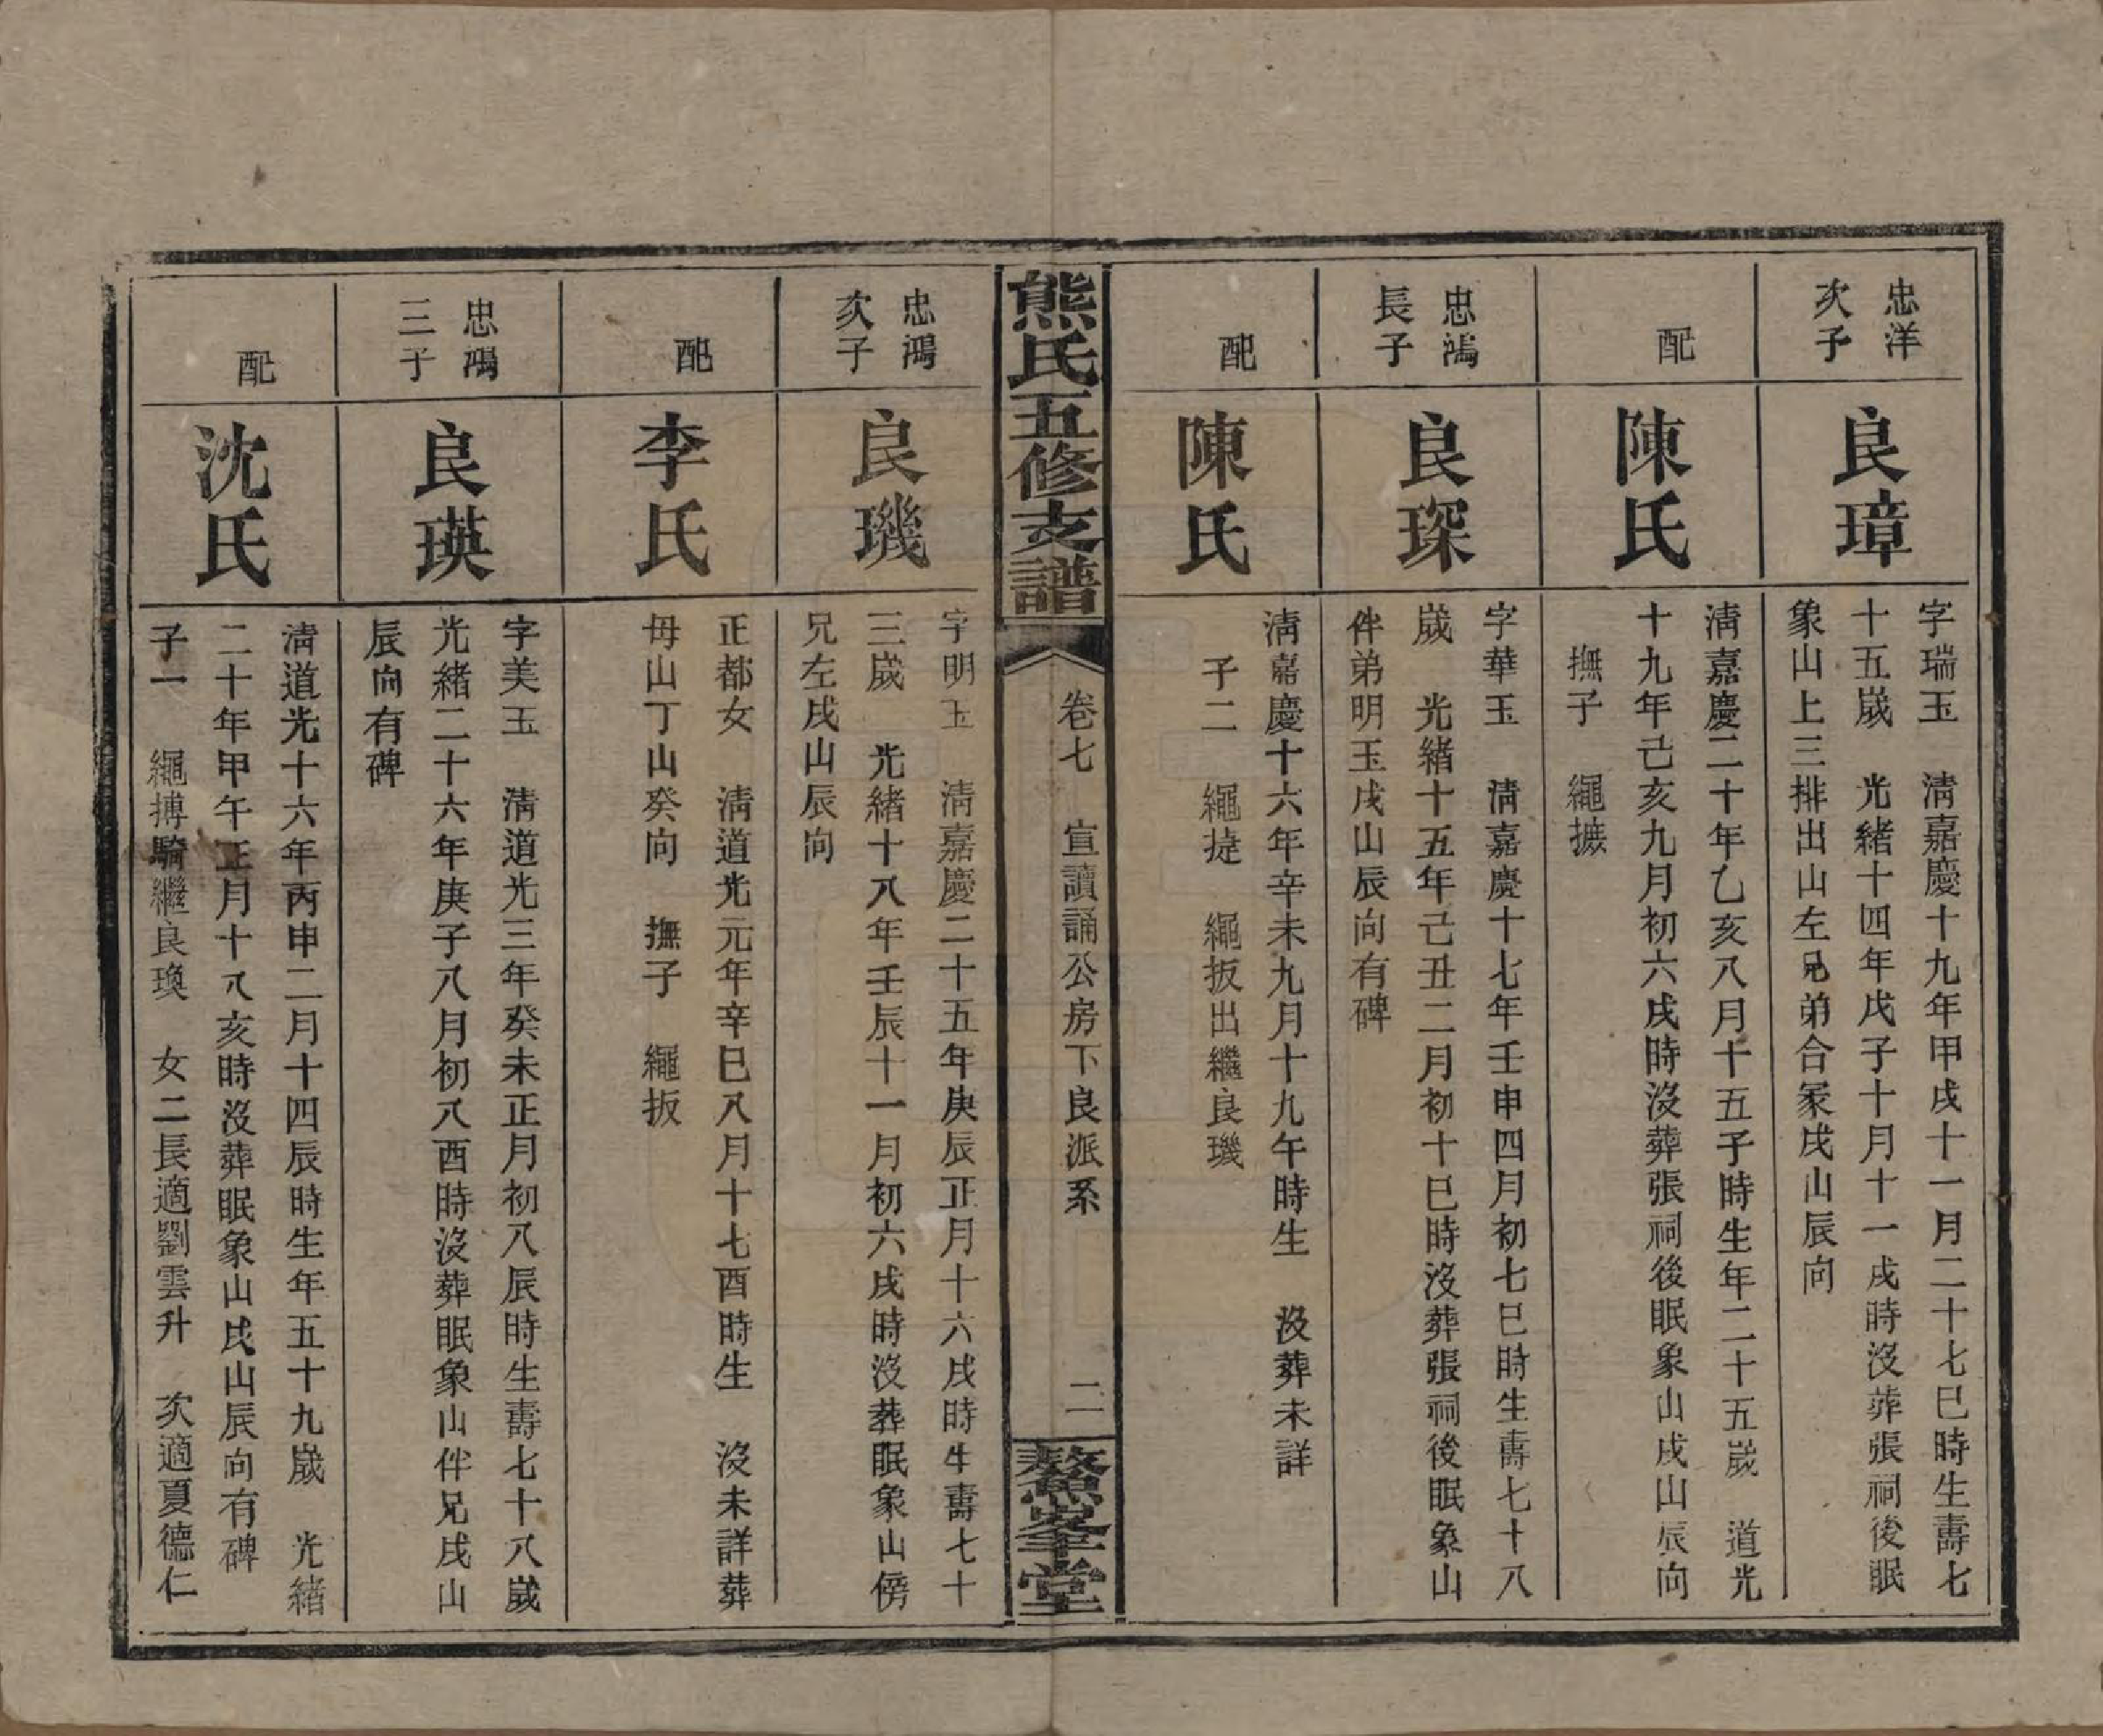 忠洋
次子
良璋
字瑞玉　淸嘉慶十九年甲戌十一月二十七巳時生壽七
十五歲　光緒十四年戊子十月十一戌時沒葬張祠後眠
象山上三排出山左兄弟合冢戌山辰向
配
陳氏
淸嘉慶二十年乙亥八月十五子時生年二十五歲　道光
十九年己亥九月初六戌時沒葬張祠後眠象山戌山辰向
撫子　繩摭
忠鴻
長子
良琛
字華玉　淸嘉慶十七年壬申四月初七巳時生壽七十八
歲　光緒十五年己丑二月初十巳時沒葬張祠後眠象山
伴弟明玉戌山辰向有碑
配
陳氏
淸嘉慶十六年辛未九月十九午時生　沒葬未詳
子二　繩㨗　繩扳出繼良璣
熊氏五修支譜
卷七　宣讀誦公房下良派系
二
鰲峯堂
忠鴻
次子
良璣
字明玉　淸嘉慶二十五年庚辰正月十六戌時生壽七十
三歲　光緒十八年壬辰十一月初六戌時沒葬眠象山傍
兄左戌山辰向
配
李氏
正都女　淸道光元年辛巳八月十七酉時生　沒未詳葬
毋山丁山癸向　撫子　繩扳
忠鴻
三子
良瑛
字美玉　淸道光三年癸未正月初八辰時生壽七十八歲
光緒二十六年庚子八月初八酉時沒葬眠象山伴兄戌山
辰向有碑
配
沈氏
淸道光十六年丙申二月十四辰時生年五十九歲　光緒
二十年甲午正月十八亥時沒葬眠象山戌山辰向有碑
子一　繩搏騎繼良瑍　女二長適劉雲升　次適夏德仁